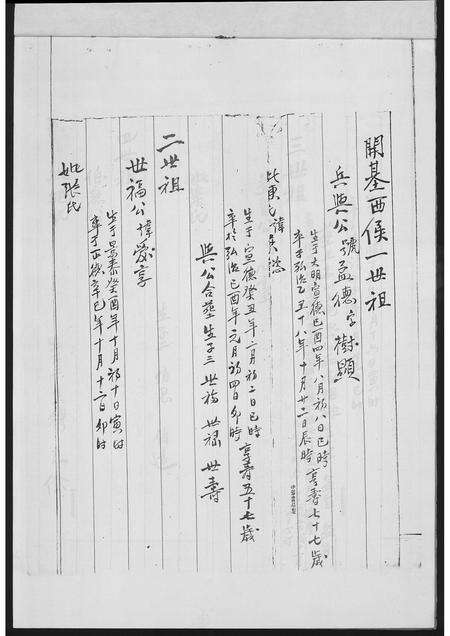 開基西候一世祖
兵與公號孟德字樹顯
生于大明宣德己酉四年八月初八日巳時
卒于弘治乙丑十八年十月廿二日辰時 享壽七十七歲
妣陳氏諱
生于宣德癸丑年二月初二日巳時
卒於弘治己酉年元月初四日卯時 享壽五十七歲
與公合塟生子三 世福 世祿 世壽
二世祖
世福公諱愛享
生于景泰癸酉年十月初十日寅時
卒于正德辛巳年十月十二日卯時
妣張氏